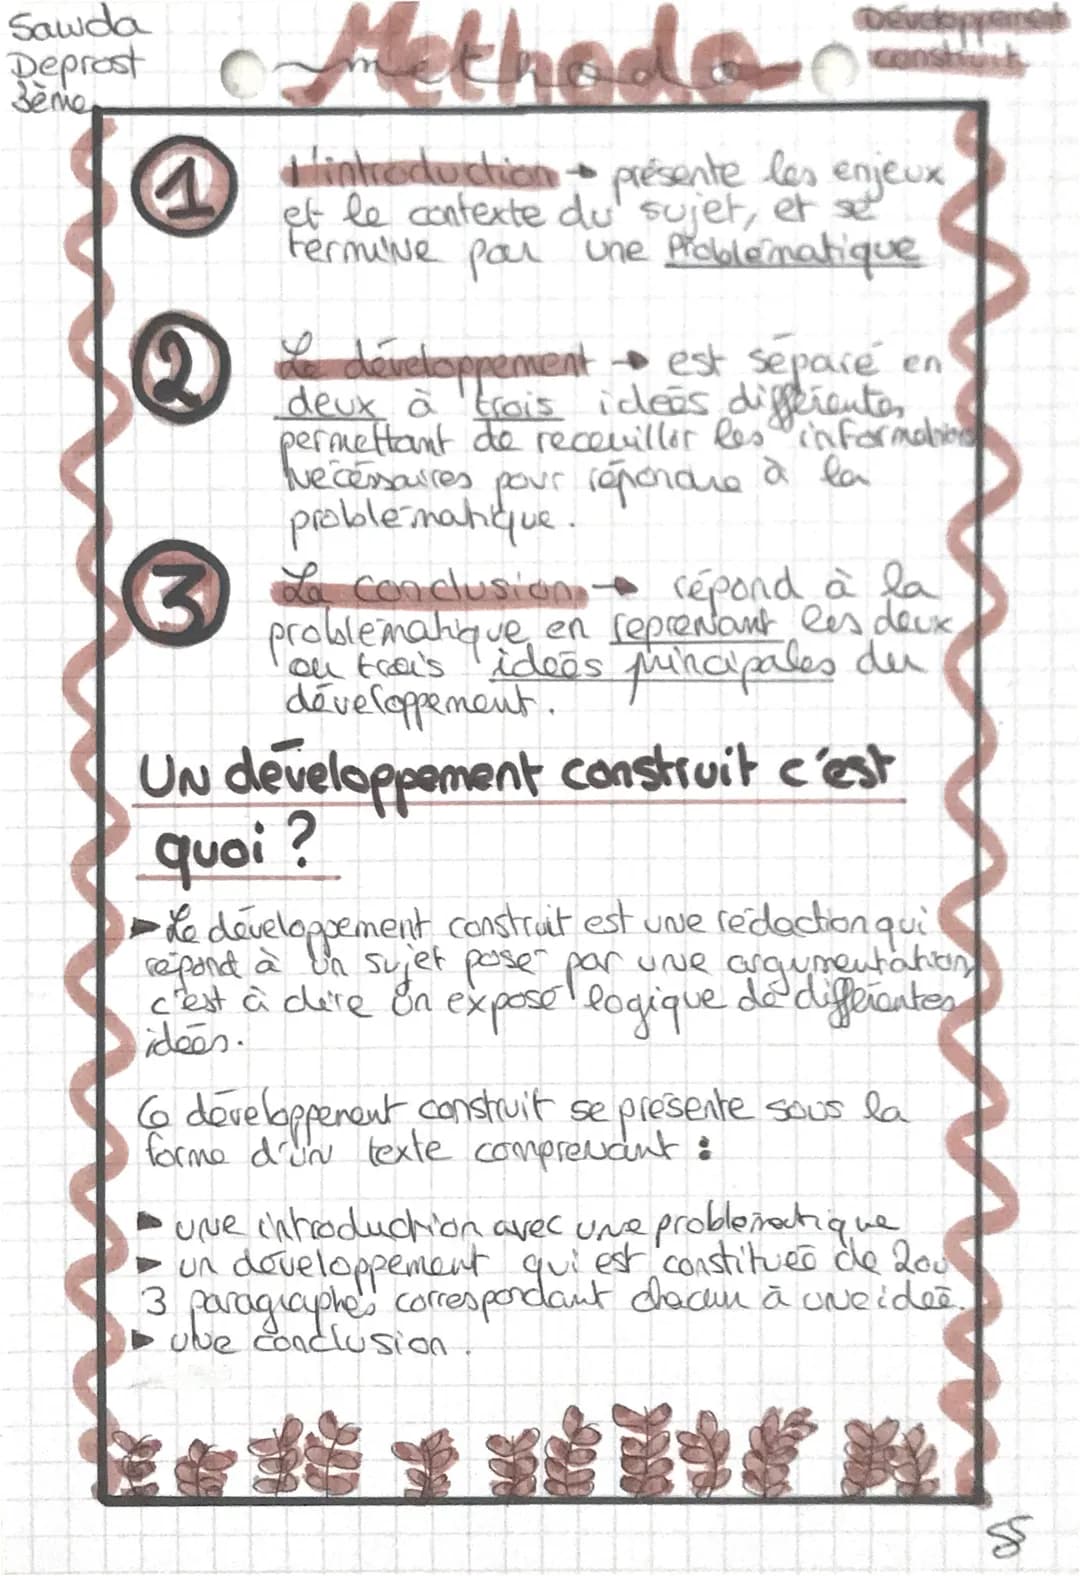 Sawda
Deprost
3ème
Methodo
Développement
construit
1
l'introduction → présente les enjeux
et le contexte du sujet, et se
termine par une Problématique
2
Le développement → est séparé en
deux à trois idées différentes,
permettant de receuillir les informations
nécéssaires pour répondre à la
problématique.
3
La conclusion → répond à la
problématique en reprenant les deux
ou trois idées principales du
développement.
Un développement construit c'est
quoi ?
► Le développement construit est une rédaction qui
répond à un sujet posé par une argumentation,
c'est à dire un exposé logique de différentes
idées.
Ce développement construit se présente sous la
forme d'un texte comprenant :
► une introduction avec une problématique
► un développement qui est constitueé de 2 ou
3 paragraphes correspondant chacun à une idée.
► une conclusion.